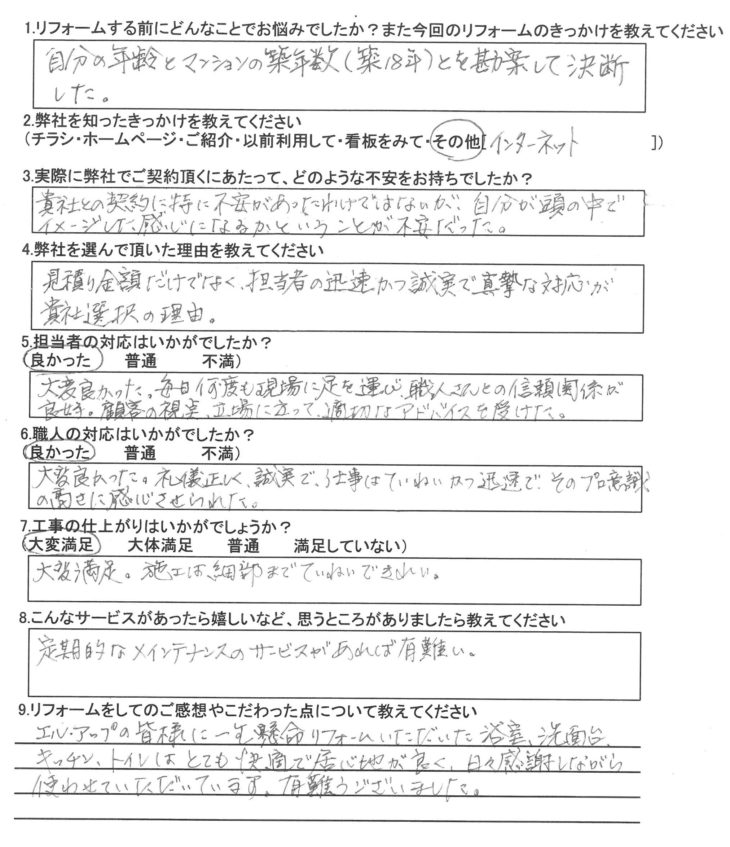 1.リフォームする前にどんなことでお悩みでしたか？また今回のリフォームのきっかけを教えてください
自分の年齢とマンションの築年数(築18年)とを勘案して決断
した。
2.弊社を知ったきっかけを教えてください
(チラシ・ホームページ・ご紹介・以前利用して・看板をみて・その他[インターネット ])
3.実際に弊社でご契約頂くにあたって、どのような不安をお持ちでしたか？
貴社との契約に特に不安があったわけではないが、自分が頭の中で
イメージした感じになるかということが不安だった。
4.弊社を選んで頂いた理由を教えてください
見積り金額だけでなく、担当者の迅速かつ誠実で真摯な対応が
貴社選択の理由。
5.担当者の対応はいかがでしたか？
(良かった 普通 不満)
大変良かった。毎日何度も現場に足を運び、職人さんとの信頼関係が
良好。顧客の視点、立場に立って、適切なアドバイスを受けた。
6.職人の対応はいかがでしたか？
(良かった 普通 不満)
大変良かった。礼儀正しく、誠実で、仕事はていねいかつ迅速で、そのプロ意識
の高さに感心させられた。
7.工事の仕上がりはいかがでしょうか？
(大変満足 大体満足 普通 満足していない)
大変満足。施工は細部までていねいできれい。
8.こんなサービスがあったら嬉しいなど、思うところがありましたら教えてください
定期的なメインテナンスのサービスがあれば有難い。
9.リフォームをしてのご感想やこだわった点について教えてください
エル・アップの皆様に一生懸命リフォームいただいた浴室、洗面台、
キッチン、トイレはとても快適で居心地が良く、日々感謝しながら
使わせていただいています。有難うございました。